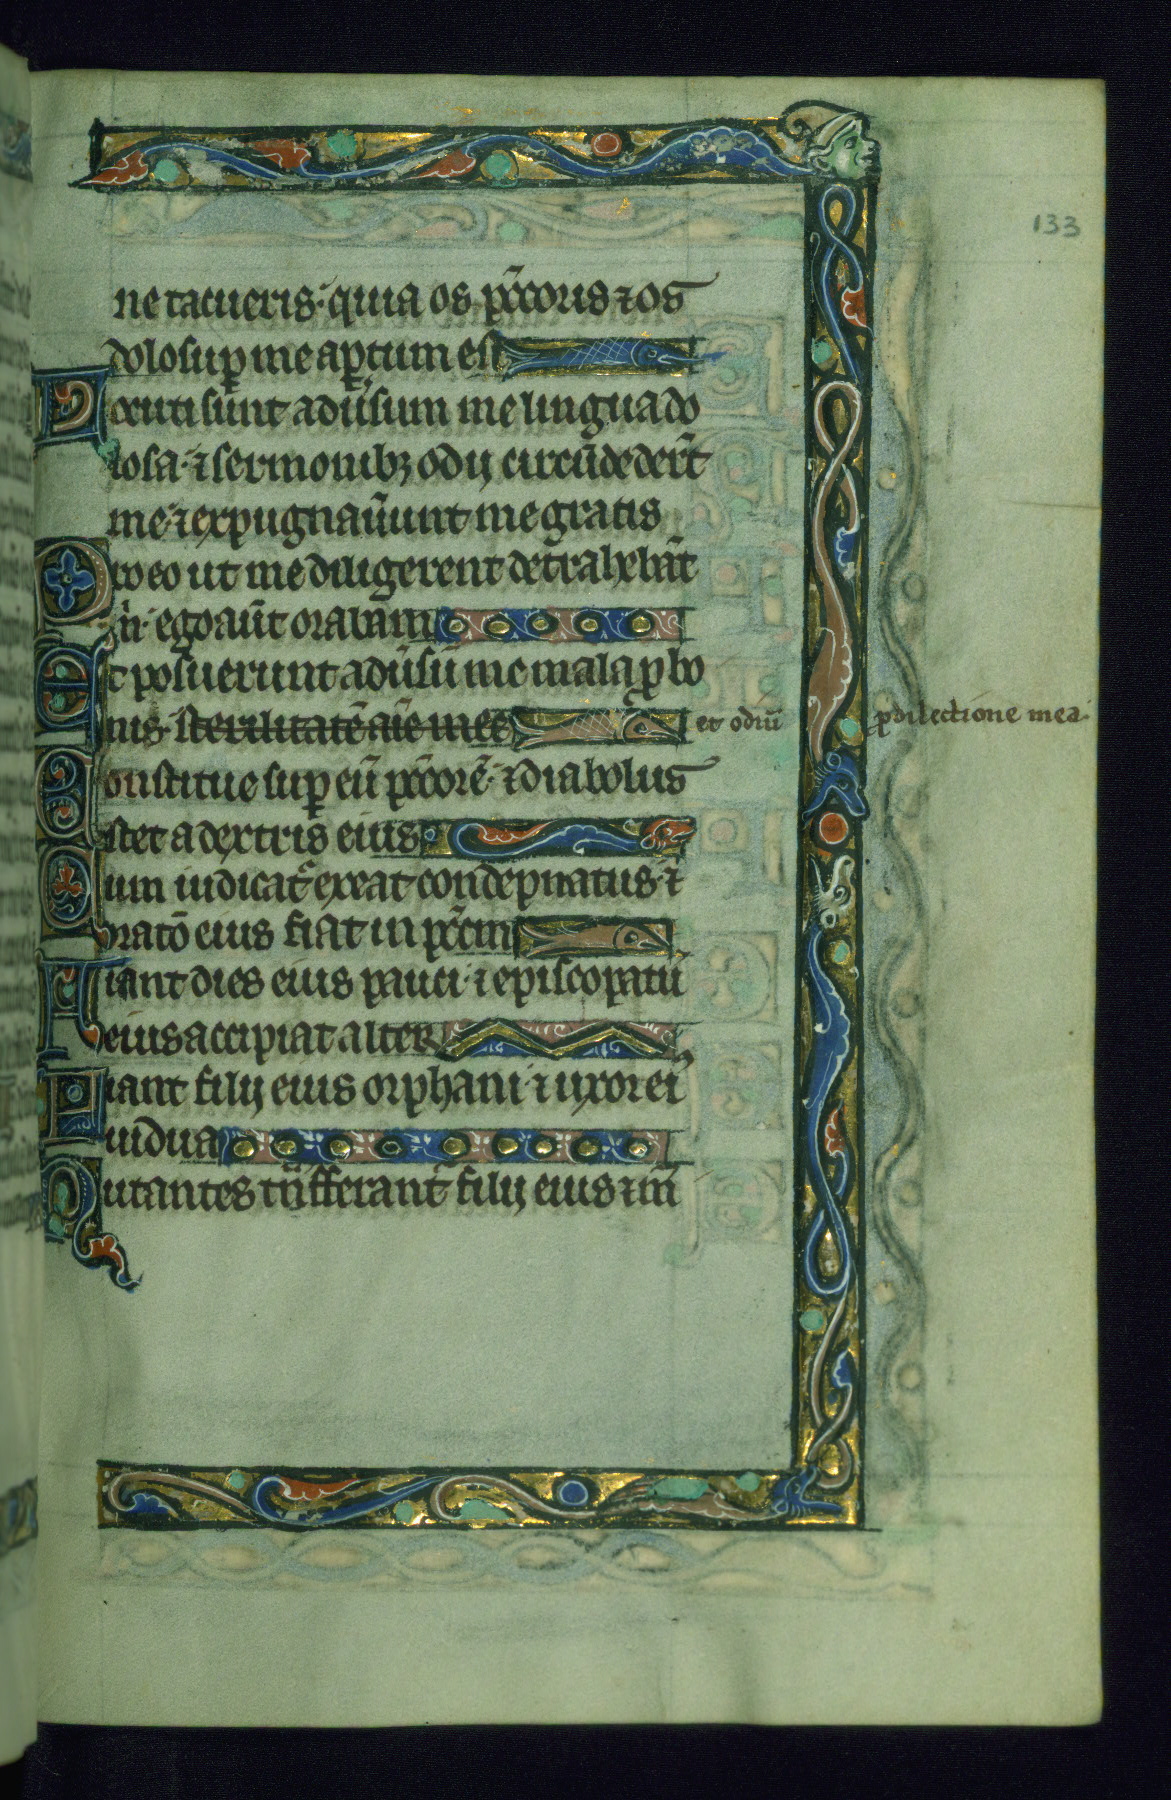 133
ne tacueris· quia os pc̄coris ⁊ os
dolosi sup me aptum est
Locuti sunt adu̾sum me lingua do
losa· ⁊ sermonibꝫ odij circūdeder̄t
me· ⁊ expugnau̾unt me gratis
Pro eo ut me diligerent detrahebāt
m̄· ego aūt orabam
Et posuerunt adu̾sū me mala p bo
nis· sterilitatē aīe mee et odiū p dilectione mea·
Constitue sup eū pc̄corē· ⁊ diabolus
stet a dextris eius
Cum iudicat̾ exeat condepnatus· ⁊
oratō eius fiat in pc̄cm
Fiant dies eius pauci· ⁊ episcopatū
eius accipiat alter
Fiant filij eius orphani· ⁊ uxor ei᷒
uidua
Nutantes tn̄fferant̾ filij eius ⁊ m̄